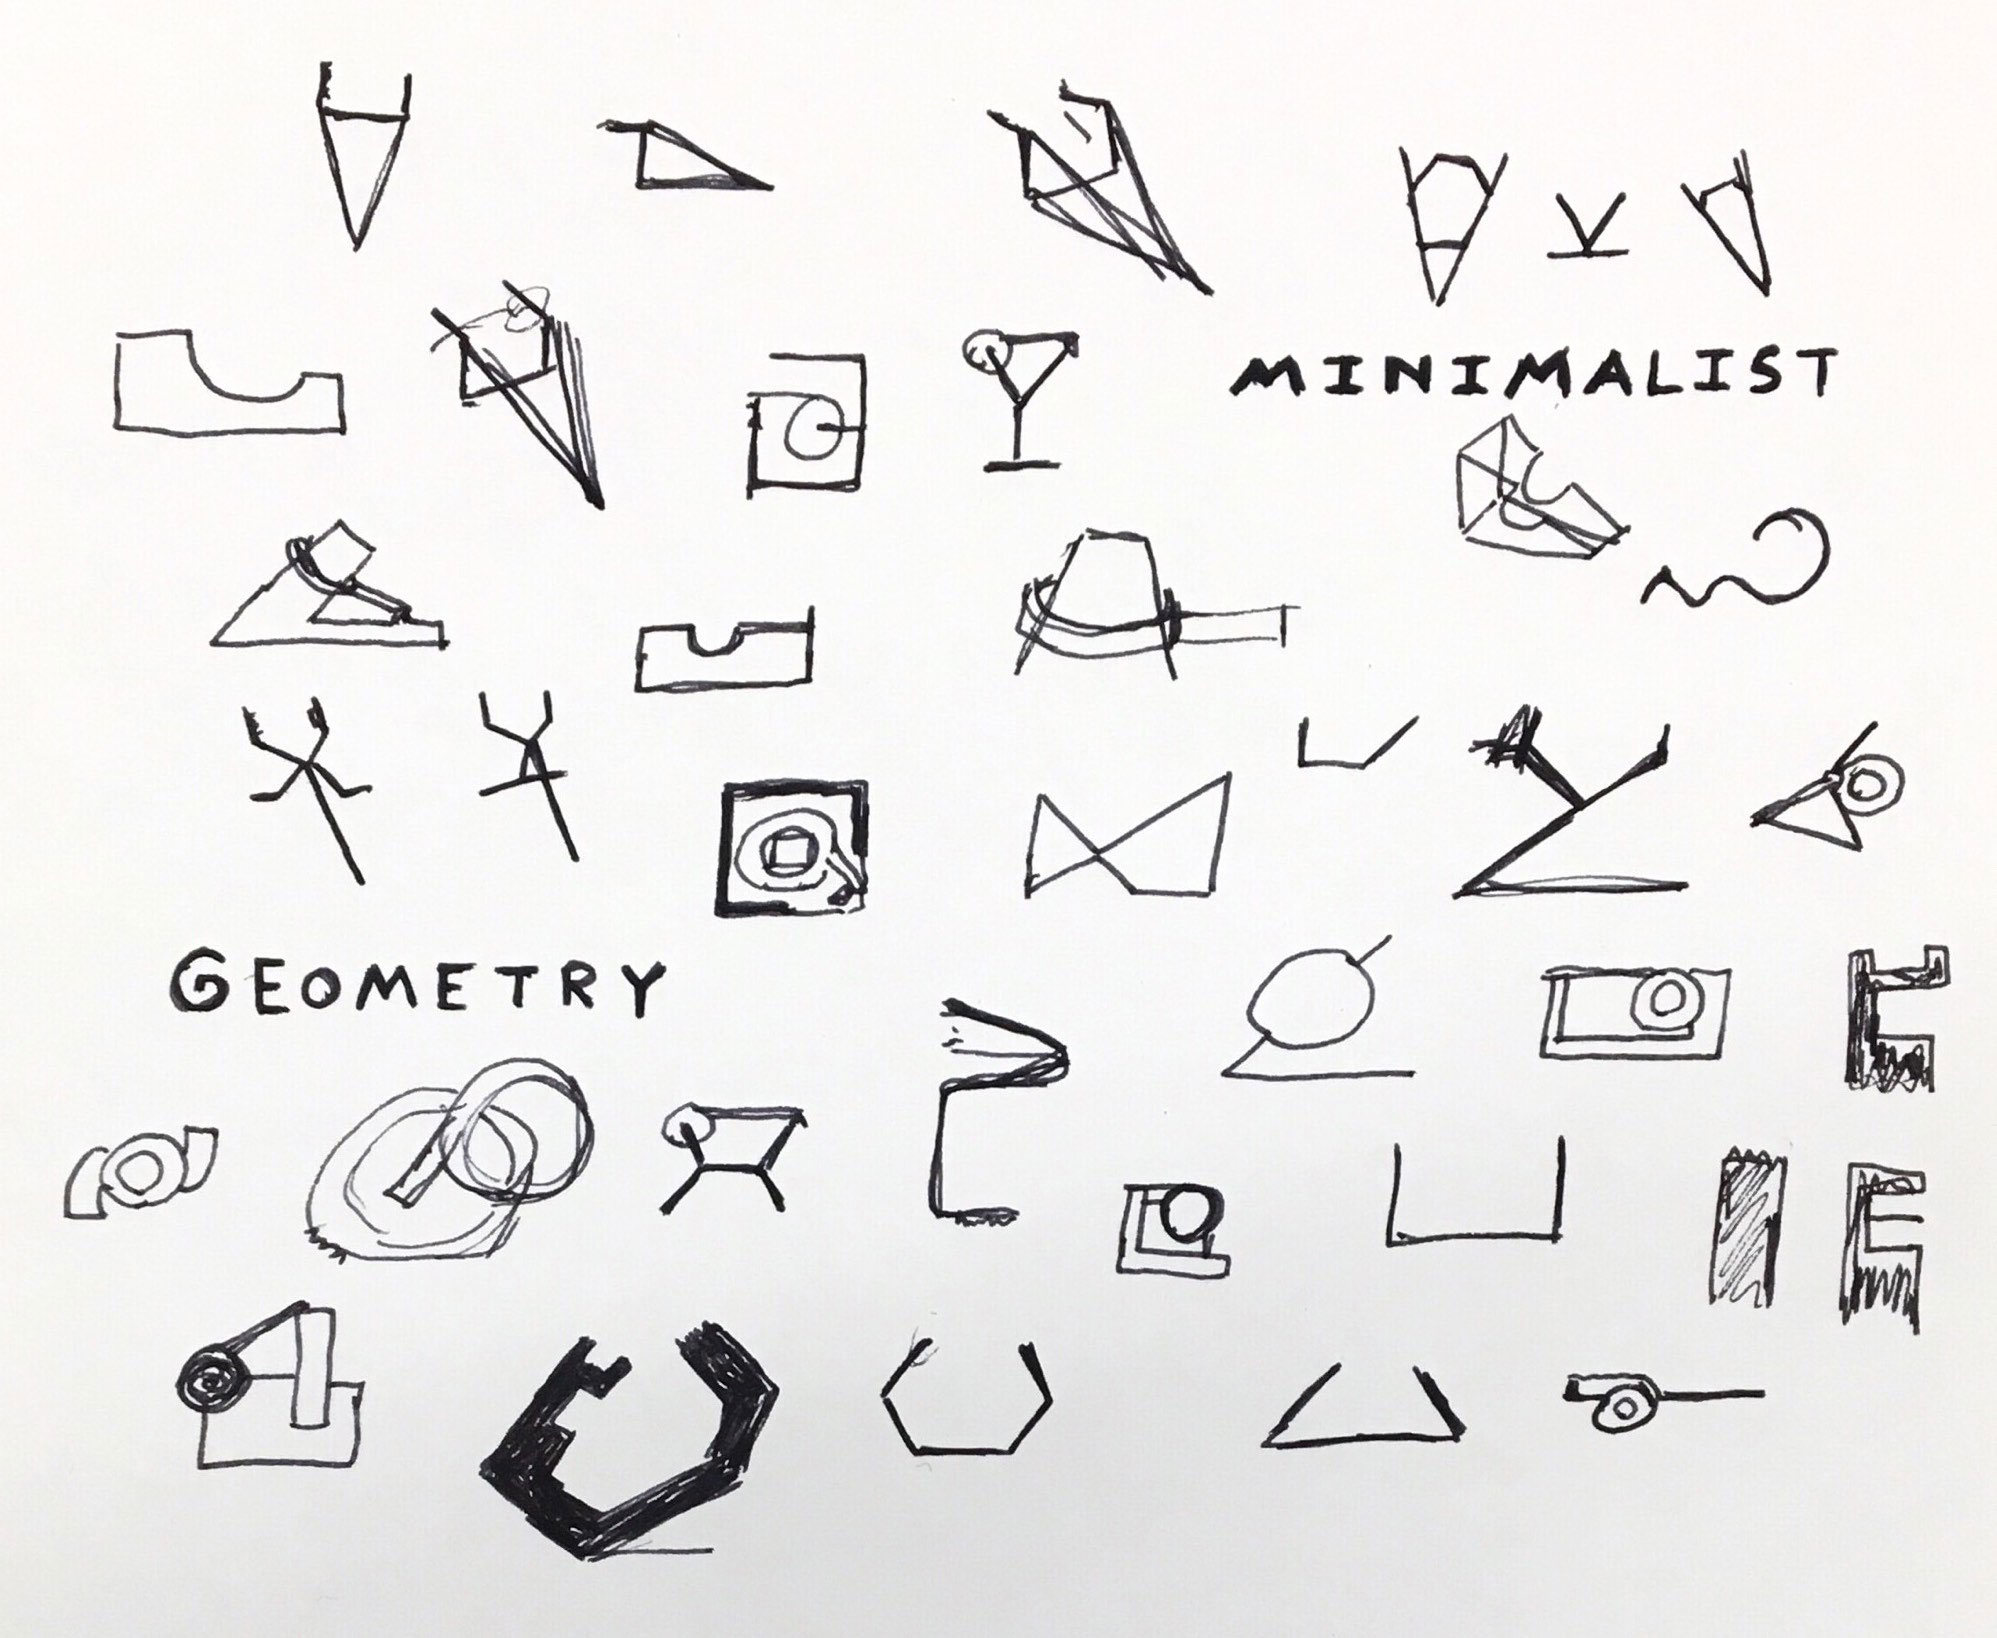 MINIMALIST
GEOMETRY